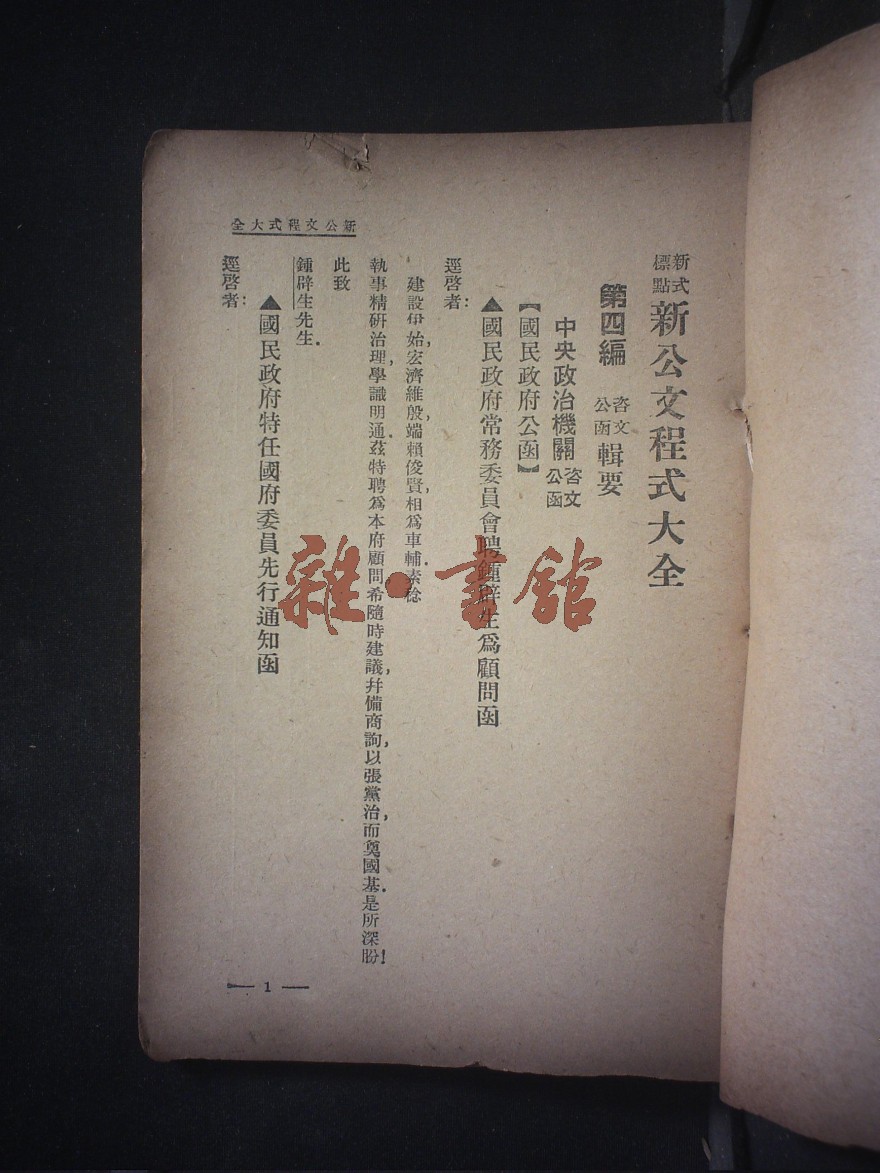 新式標點 新公文程式大全
第四編 咨文公函 輯要
中央政治機關 咨文公函
【國民政府公函】
▲國民政府常務委員會聘鍾辟生爲顧問函
逕啓者:
建設伊始,宏濟維殷,端賴俊賢,相爲車輔.素稔
執事精研治理,學識明通.茲特聘爲本府顧問,希隨時建議,幷備商詢,以張黨治,而奠國基.是所深盼!
此致
鍾辟生先生.
▲國民政府特任國府委員先行通知函
逕啓者:
新公文程式大全
1
雜·書館